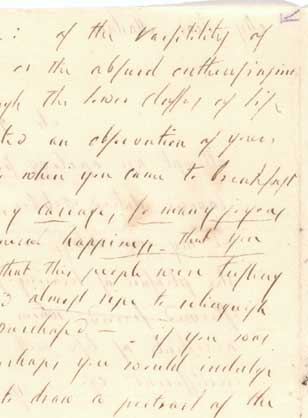 : of the Versitility of
or the absurd enthusiasm
the lower classes of life
an observation of yours
when you came to breakfast
carnage, so many joyous
happiness - that you
that this people were
almost ripe to relinquish
purchased - - if you was
perhaps you would indulge
to draw a portrait of the